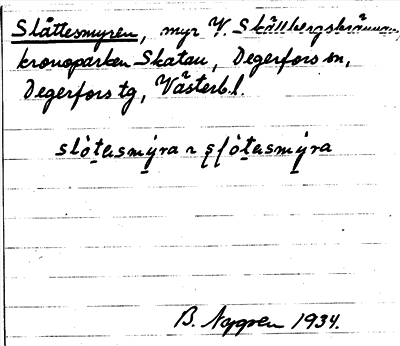 Slåttesmyren, myr V. Skällbergsbrännan,
kronoparken Skatan, Degerfors sn,
Degerfors tg, Västerb. l.
slòtesmýra ~ ʂʃòtesmýra
B. Nygren 1934.